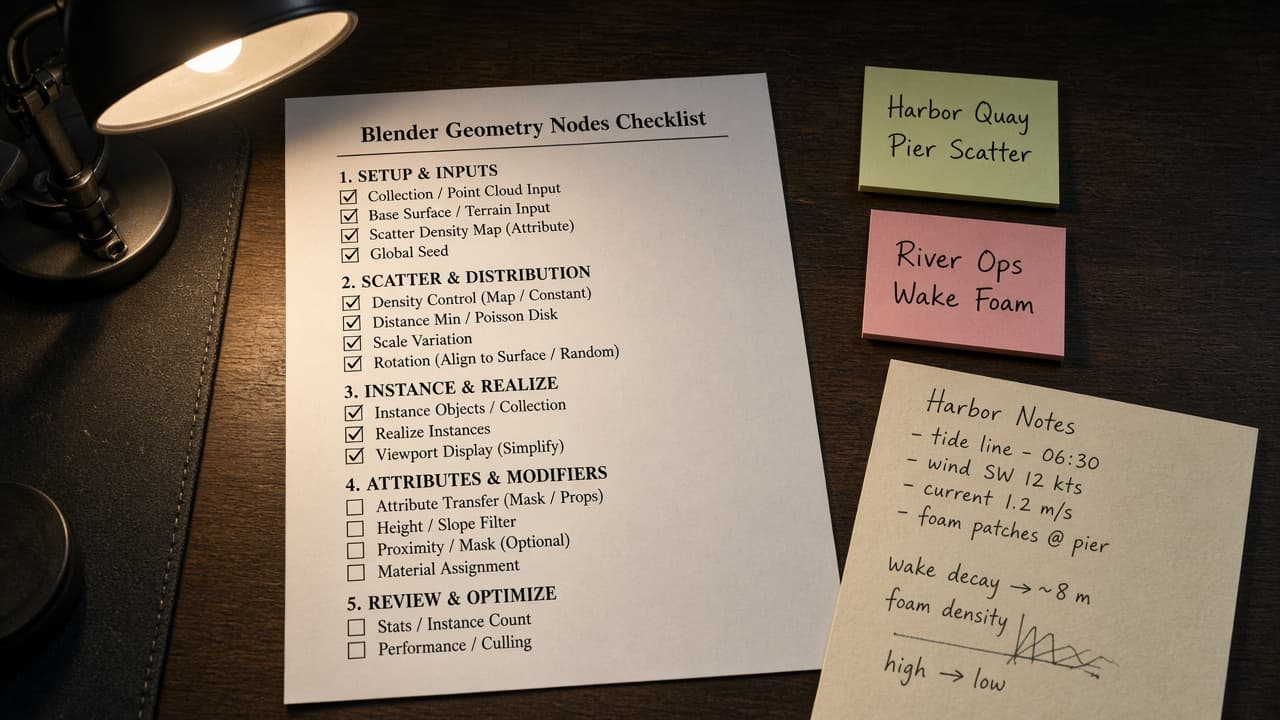 Blender Geometry Nodes Checklist
1. SETUP & INPUTS
Collection / Point Cloud Input
Base Surface / Terrain Input
Scatter Density Map (Attribute)
Global Seed
2. SCATTER & DISTRIBUTION
Density Control (Map / Constant)
Distance Min / Poisson Disk
Scale Variation
Rotation (Align to Surface / Random)
3. INSTANCE & REALIZE
Instance Objects / Collection
Realize Instances
Viewport Display (Simplify)
4. ATTRIBUTES & MODIFIERS
Attribute Transfer (Mask / Props)
Height / Slope Filter
Proximity / Mask (Optional)
Material Assignment
5. REVIEW & OPTIMIZE
Stats / Instance Count
Performance / Culling
Harbor Quay
Pier Scatter
River Ops
Wake Foam
Harbor Notes
- tide line - 06:30
- wind SW 12 kts
- current 1.2 m/s
- foam patches @ pier
wake decay → ~8 m
foam density
high → low